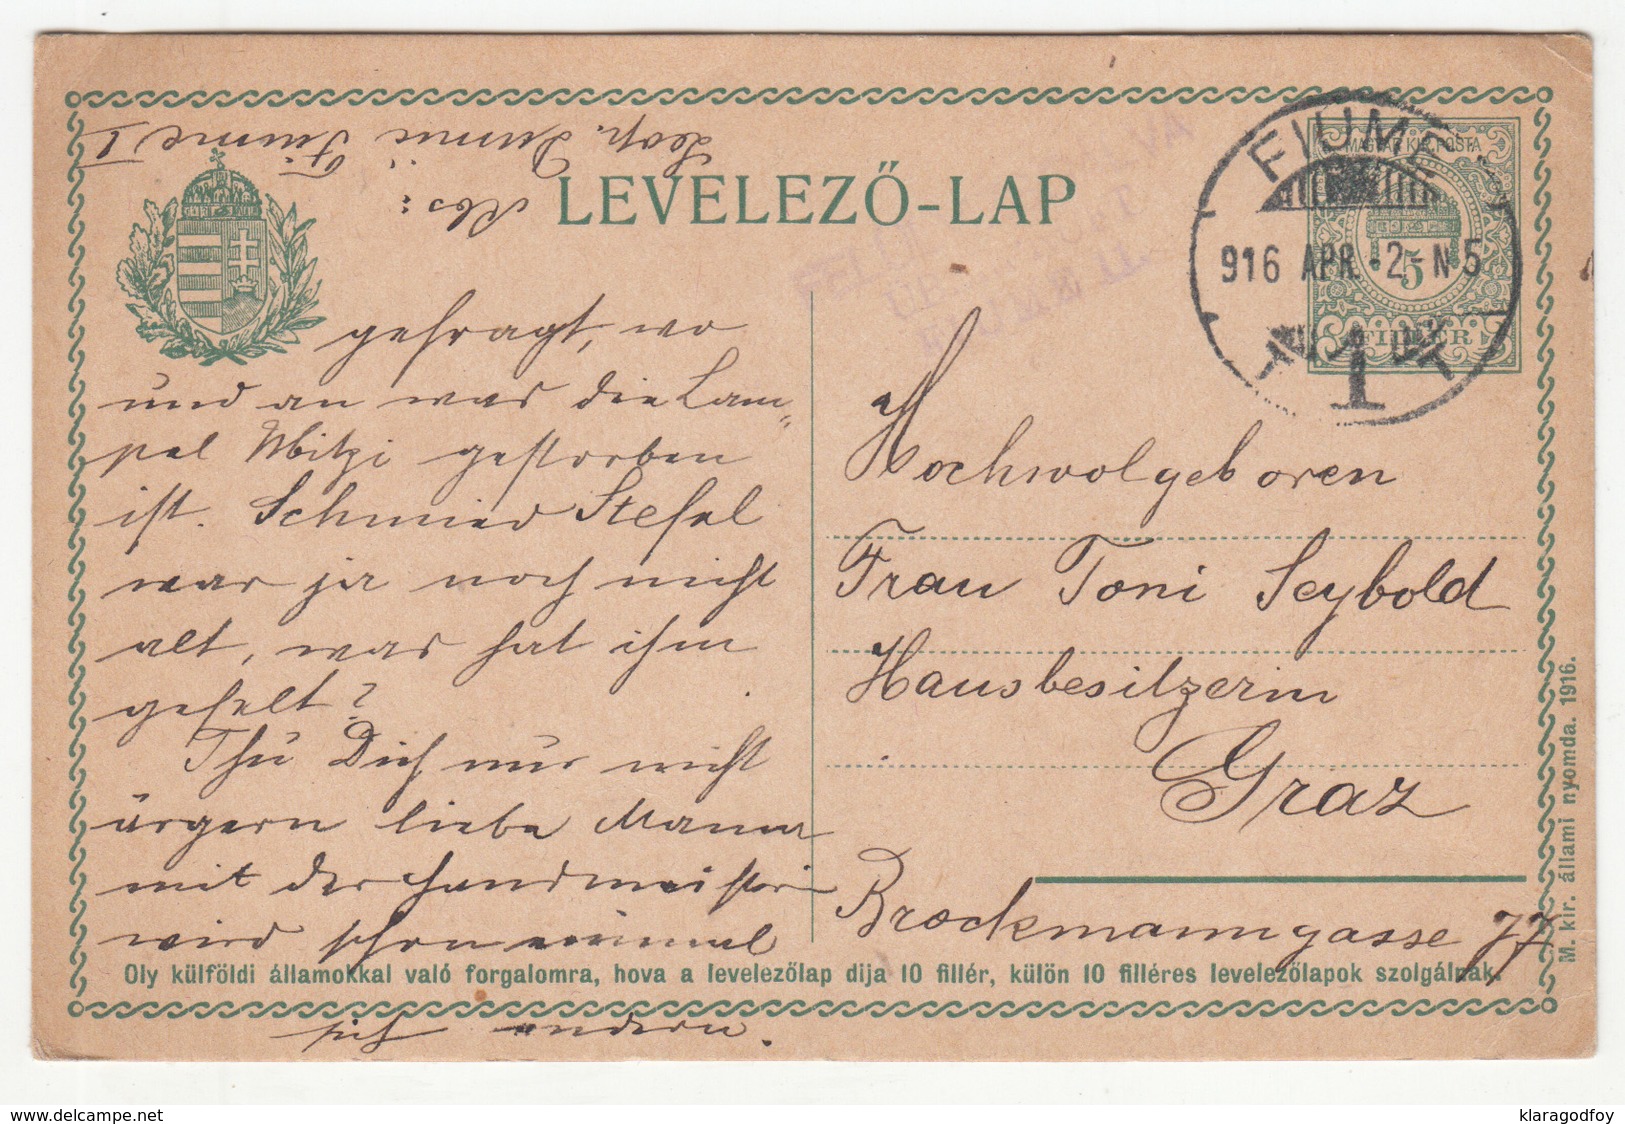 Abs:
Leop. Dunie
Fiume I
LEVELEZŐ-LAP
FIUME
916 APR. -2.- N 5
1
MAGYAR KIR. POSTA
5
FILLÉR
gefragt, wo
und an was die Lam-
pel Mitzi gestorben
ist. Schmied Stefel
war ja noch nicht
alt, was hat ihm
gefelt?
Thu Dich nur nicht
ärgern liebe Mama
mit der Hausmeisterin
wird schon einmal
sich ändern.
Hochwolgeboren
Frau Toni Seybold
Hausbesitzerin
Graz
Brockmanngasse 77
Oly külföldi államokkal való forgalomra, hova a levelezőlap dija 10 fillér, külön 10 filléres levelezőlapok szolgálnak.
M. kir. állami nyomda. 1916.
www.delcampe.net
klaragodfoy